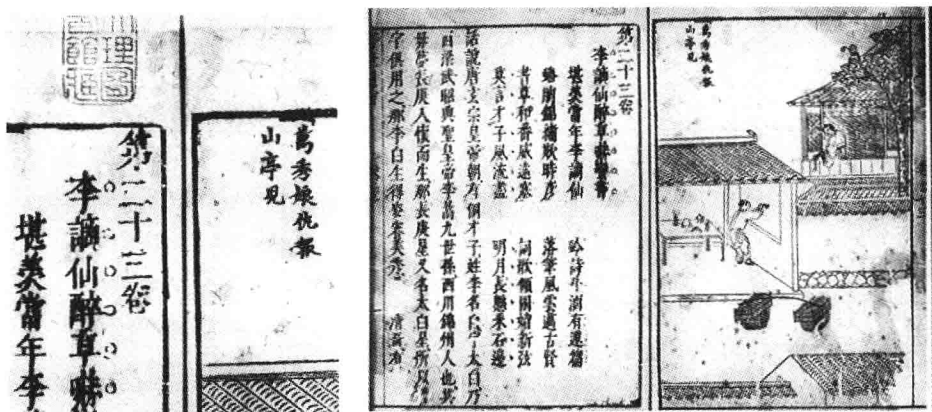 萬秀娘仇報
山亭兒
第二十三卷
李謫仙醉草嚇
堪羨當年李
萬秀娘仇報
山亭兒
第二十三卷
李謫仙醉草嚇蠻書
堪羨當年李謫仙 吟詩斗酒有連篇
蟠胸錦繡欺時彥 落筆風雲邁古賢
書草和番威遠塞 詞歌傾國媚新弦
莫言才子風流盡 明月長懸采石邊
話說唐玄宗皇帝朝有個才子姓李名白字太白乃
西梁武昭興聖皇帝李暠九世孫西川錦州人也其
母夢長庚入懷而生那長庚星又名太白星所以名
字俱用之那李白生得姿容美秀 清奇有